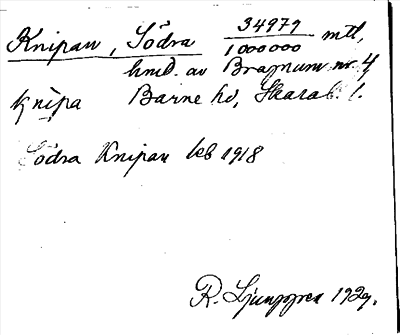 Knipan, Södra 34979/1000000 mtl,
hmd. av Bragnum nr. 4,
knìpa Barne hd, Skarab. l.
Södra Knipan leb 1918
R. Ljunggren 1929.